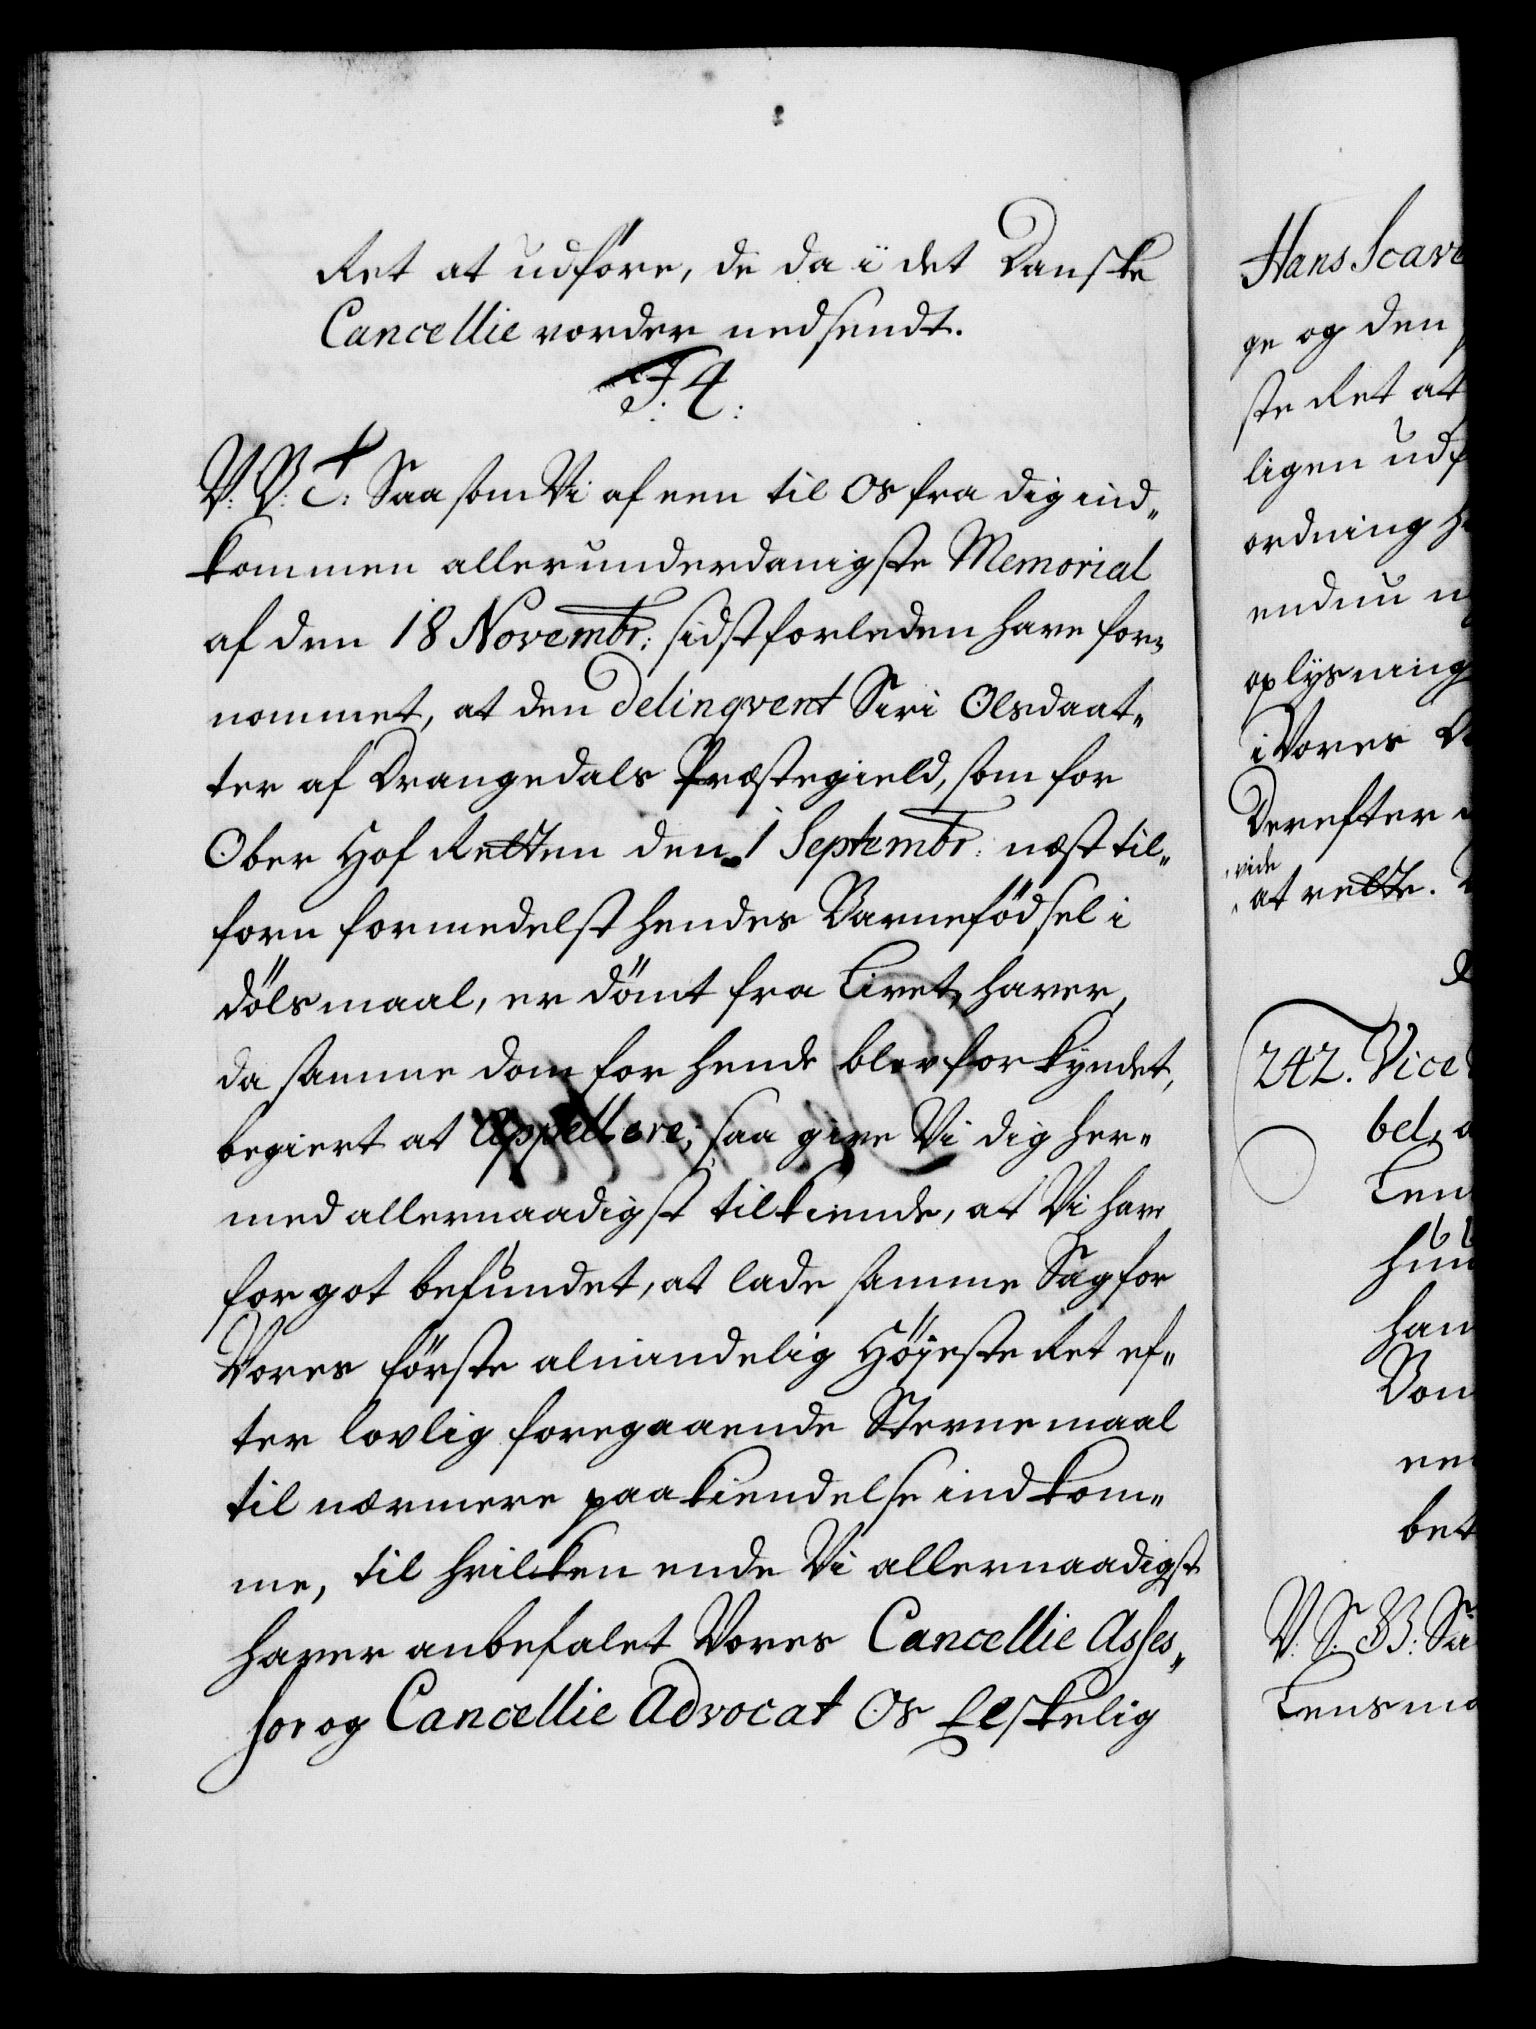 Ret at udföre, de da i det Danske
Cancellie vorder nedsendt.
F. 4.
V. G. T. Saa som Vi af een til Os fra dig ind„
kommen allerunderdanigste Memorial
af den 18 Novembr: sidstforleden have for„
nommet, at den Delinqvent Siri Olsdaat„
ter af Drangedals Præstegield, som for
Ober Hof Retten den 1 Septembr: næst til„
forn formedelst hendes Barnefödsel i
dölsmaal, er dömt fra Livet, haver,
da samme dom for hende blev forkyndet,
begiert at Appellere; saa give Vi dig her„
med allernaadigst tilkiende, at Vi have
for got befundet, at lade samme Sag for
Vores förste almindelig Höjeste Ret ef„
ter lovlig foregaaende Stevnemaal
til nærmere paakiendelse indkom„
me, til hvilken ende Vi allernaadigst
haver anbefalet Vores Cancellie Asses„
sor og Cancellie Advocat Os Elskelig
Hans Scave
ge og den
ste Ret at
ligen udf
ordning h
endnu n
oplysning
i Vores D
Derefter
vide
at rette.
242. Vice
bel, a
Len
huu
han
Bon
ne
bet
V. S. G. B: Sa
Lensma